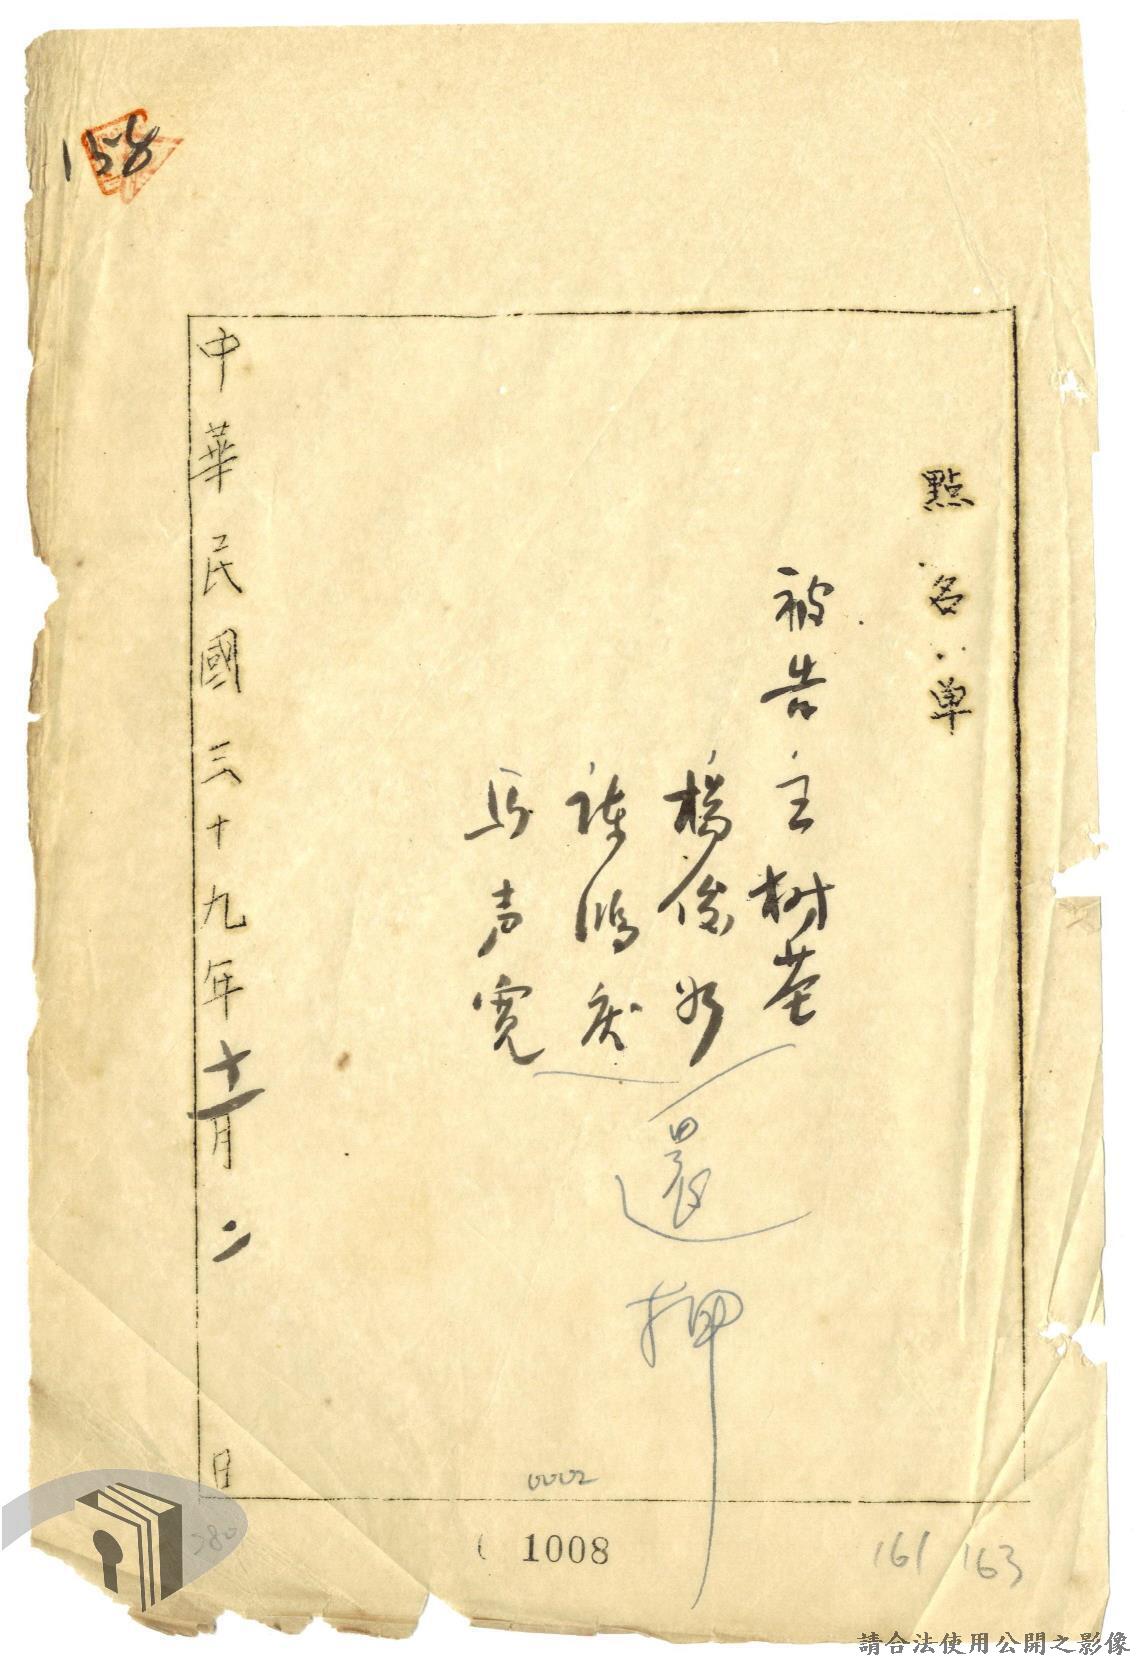 158
點名單
被告王树荃
楊俊
陳鴻庆
馬声寛
還押
中華民國三十九年十一月二日
0002
1008
161 163
280
請合法使用公開之影像